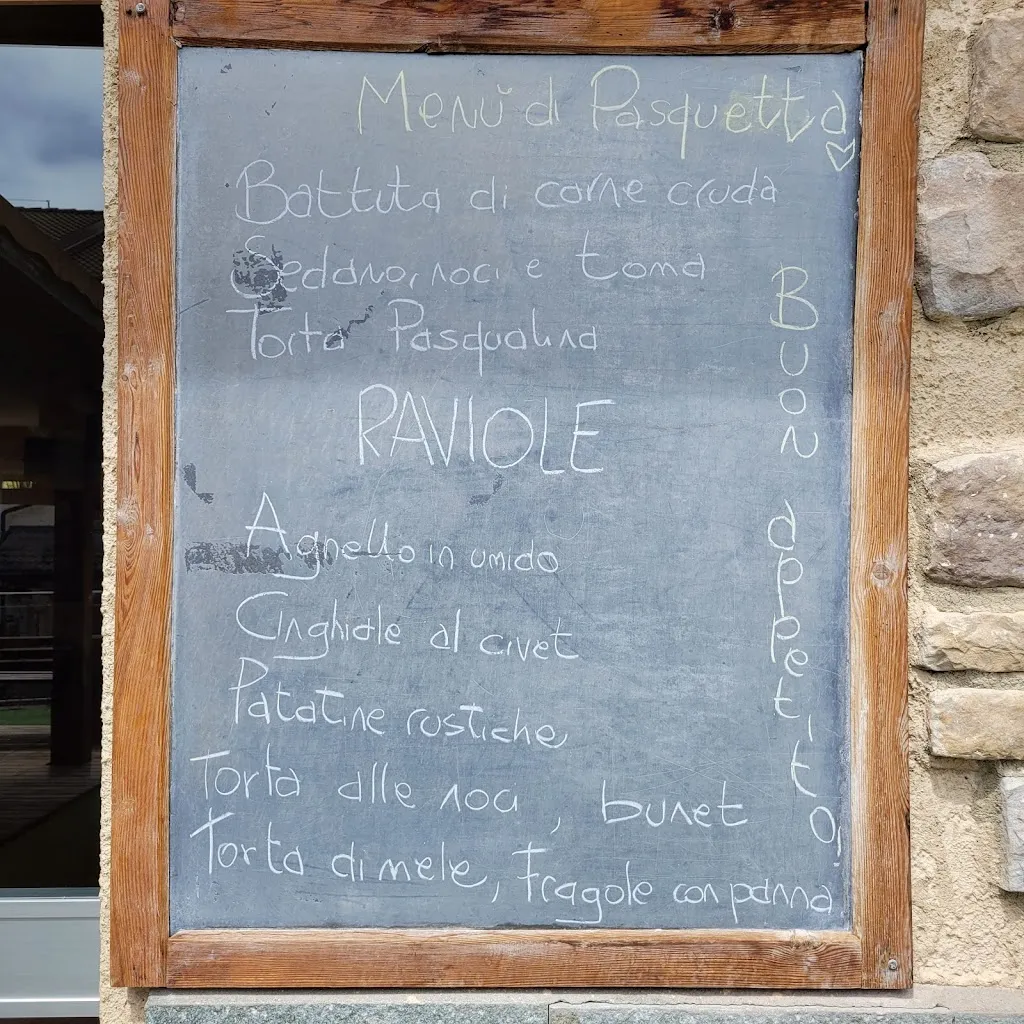 Menù di Pasquetta
Battuta di carne cruda
Sedano, noci e toma
Torta Pasqualina
RAVIOLE
Agnello in umido
Cinghiale al civet
Patatine rustiche
Torta alle noci, bunet
Torta di mele, fragole con panna
Buon appetito!